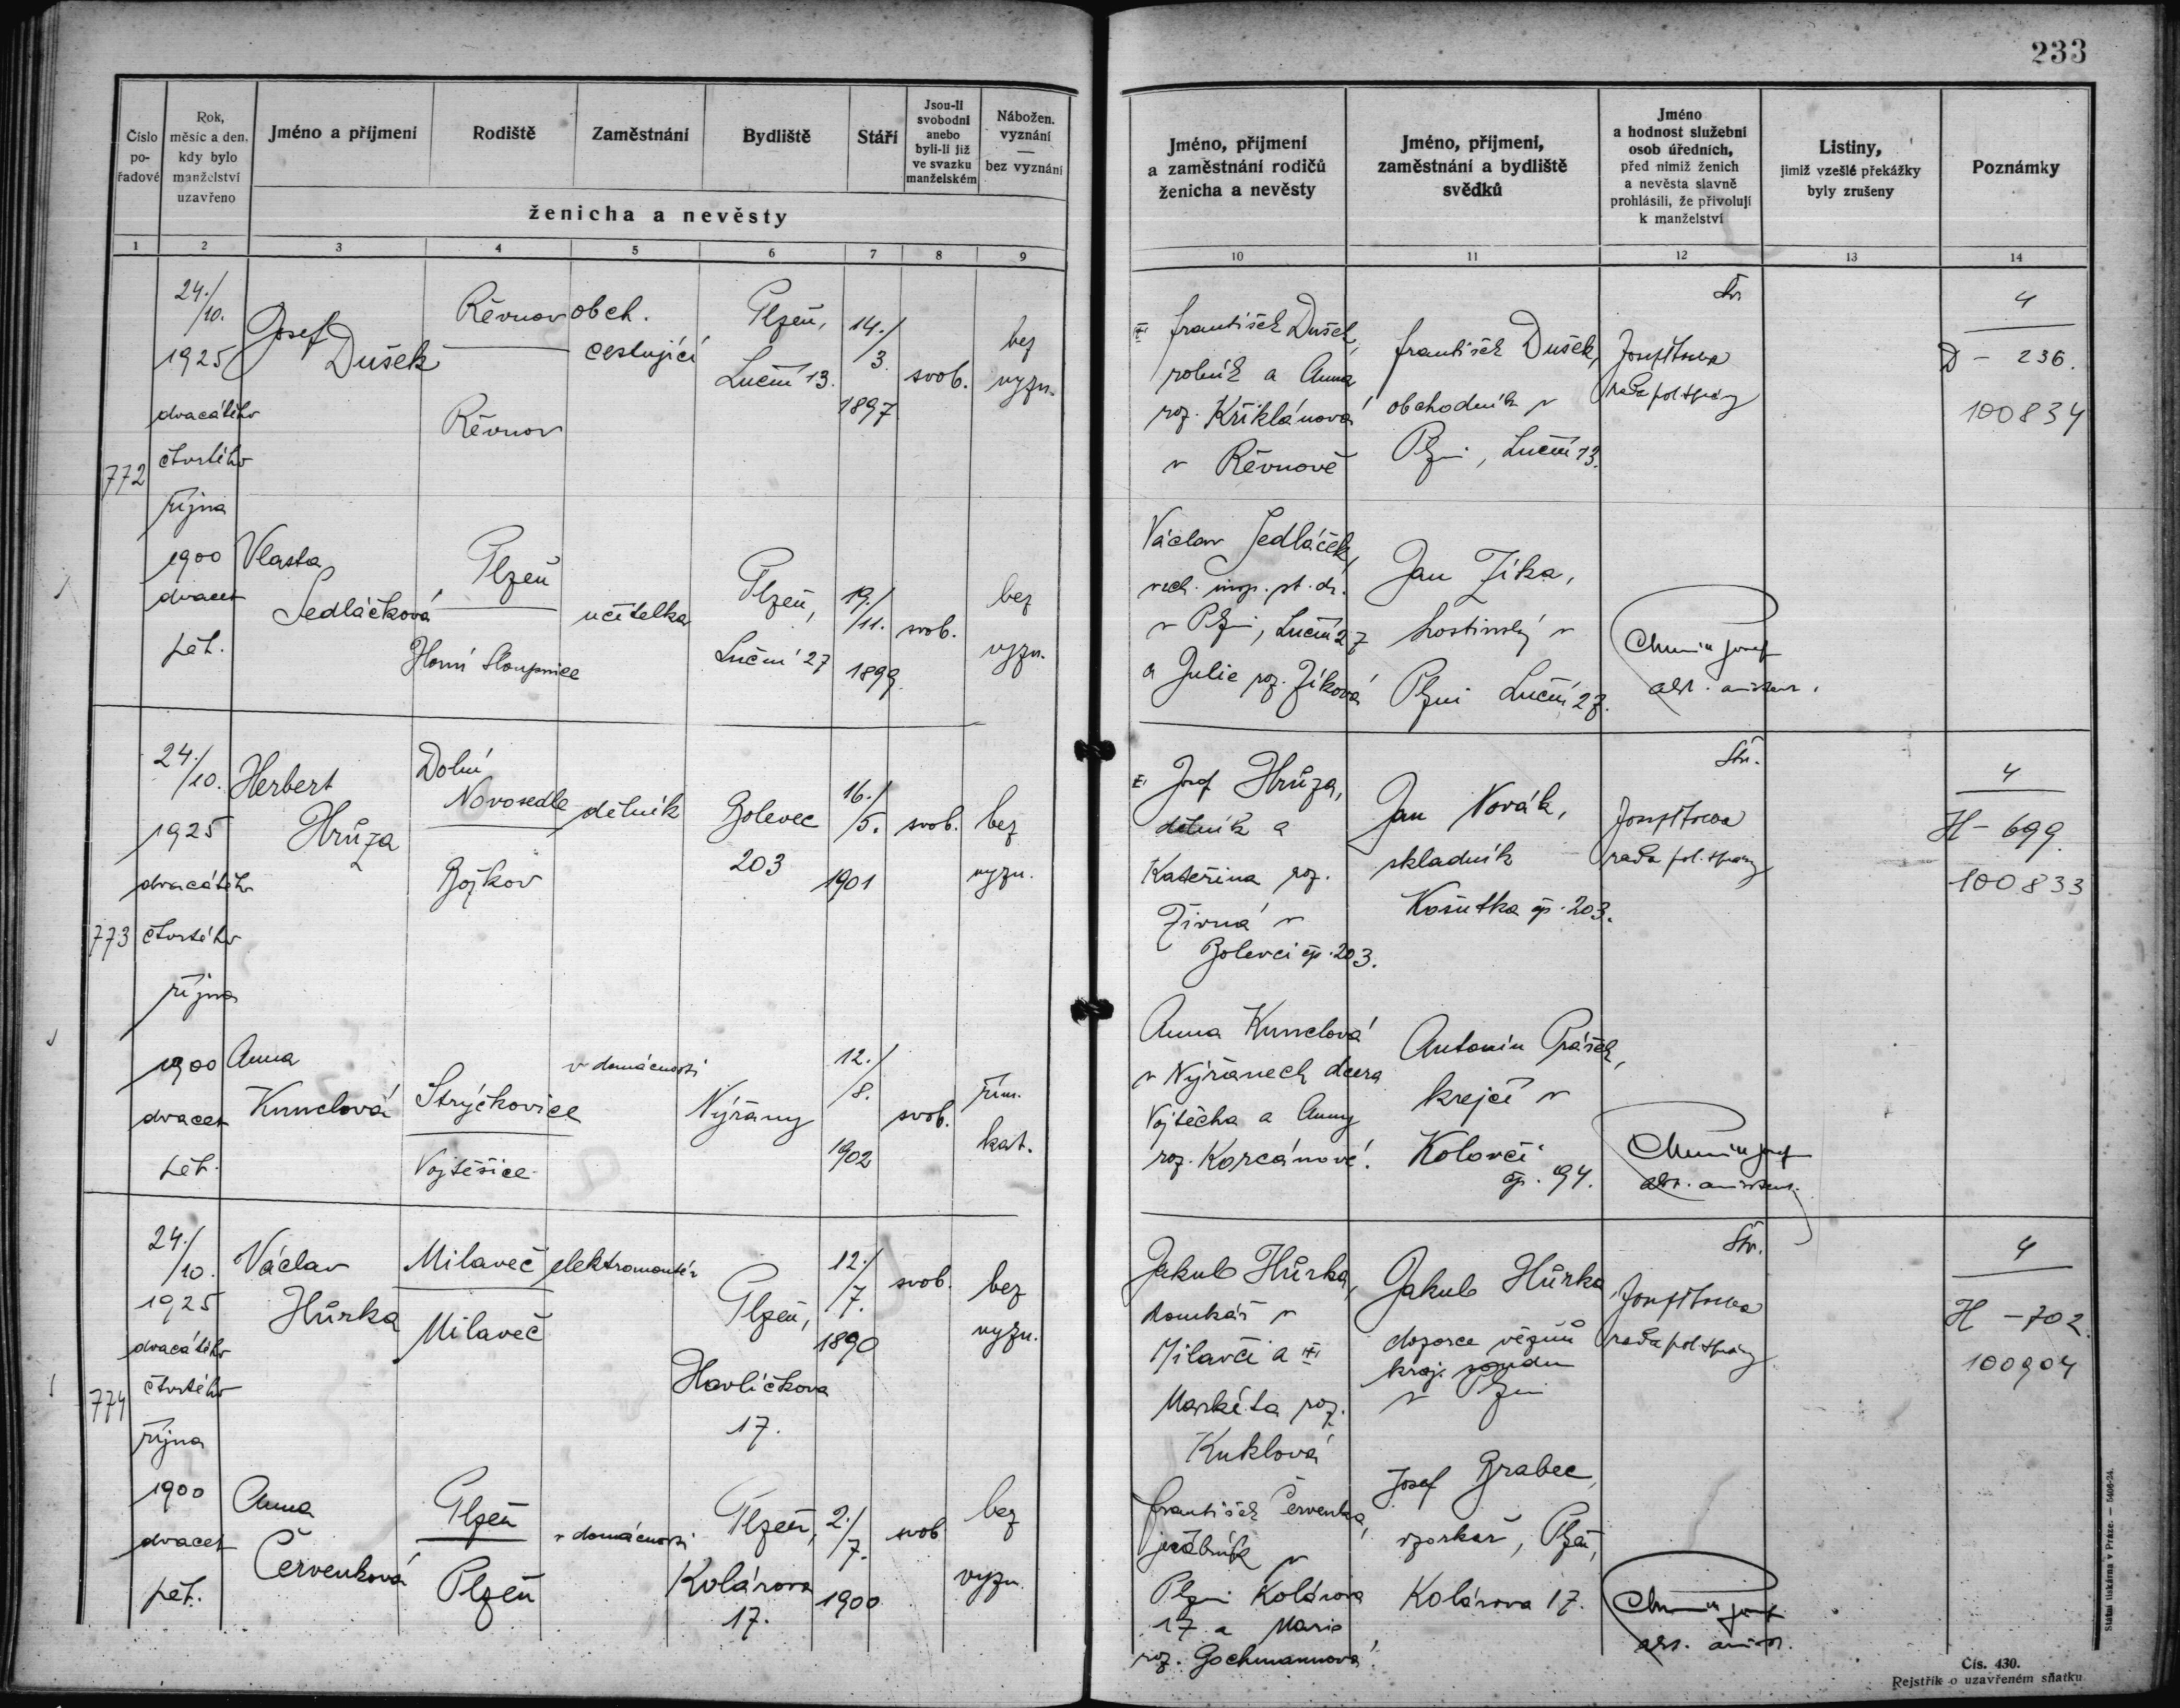 233
Číslo pořadové
Rok, měsíc a den, kdy bylo manželství uzavřeno
Jméno a příjmení
Rodiště
Zaměstnání
Bydliště
Stáří
Jsou-li svobodni anebo byli-li již ve svazku manželském
Nábožen. vyznání — bez vyznání
ženicha a nevěsty
Jméno, příjmení a zaměstnání rodičů ženicha a nevěsty
Jméno, příjmení, zaměstnání a bydliště svědků
Jméno a hodnost služební osob úředních, před nimiž ženich a nevěsta slavně prohlásili, že přivolují k manželství
Listiny, jimiž vzešlé překážky byly zrušeny
Poznámky
1 2 3 4 5 6 7 8 9 10 11 12 13 14
772
24./10.
1925
dvacátého
čtvrtého
října
1900
dvacet
pět.
Josef
Dušek
Révnov
Révnov
obch.
cestující
Plzeň,
Luční 13.
14./3.
1897
svob.
bez
vyzn.
František Dušek,
rolník a Anna
roz. Křiklánová
v Révnově
František Dušek,
obchodník v
Plzni, Luční 13.
rada pol. správy
4
D - 236.
100834
Vlasta
Sedláčková
Plzeň
Horní Sloupnice
učitelka
Plzeň,
Luční 27
19./11.
1899.
svob.
bez
vyzn.
Václav Sedláček,
v Plzni, Luční 27
a Julie roz. Zíková
Jan Zíka,
hostinský v
Plzni Luční 27.
773
24./10.
1925
dvacátého
čtvrtého
října
1900
dvacet
pět.
Herbert
Hrůza
Dolní
Novosedle
Božkov
dělník
Bolevec
203
16./5.
1901
svob.
bez
vyzn.
Josef Hrůza,
dělník a
Kateřina roz.
Živná v
Bolevci čp. 203.
Jan Novák,
skladník
Košutka čp. 203.
rada pol. správy
4
H - 699.
100833
Anna
Kunclová
Strýčkovice
Vojtěšice
v domácnosti
Nýřany
12./8.
1902
svob.
řím.
kat.
Anna Kunclová
v Nýřanech dcera
Vojtěcha a Anny
roz. Korcánové.
Antonín Prášek,
krejčí v
Kolovči
čp. 94.
774
24./10.
1925
dvacátého
čtvrtého
října
1900
dvacet
pět.
Václav
Hůrka
Milaveč
Milaveč
elektromontér
Plzeň,
Havlíčkova
17.
12./7.
1890
svob.
bez
vyzn.
Jakub Hůrka,
domkář v
Milavči a
Markéta roz.
Kuklová
Jakub Hůrka,
dozorce vězňů
kraj. soudu
v Plzni
rada pol. správy
4
H - 702.
100904
Anna
Červenková
Plzeň
Plzeň
v domácnosti
Plzeň,
Kolárova
17.
2./7.
1900
svob
bez
vyzn.
František Červenka,
jeřábník v
Plzni Kolárova
17 a Marie
roz. Gochmannová.
Josef Brabec,
vzorkař, Plzeň,
Kolárova 17.
Státní tiskárna v Praze. — 5406-24.
Čís. 430.
Rejstřík o uzavřeném sňatku